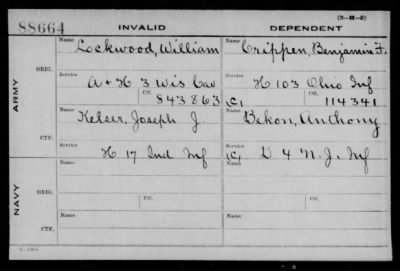 (3-M-2)
88664 INVALID DEPENDENT
ARMY
ORIG.
Name Name
Lockwood, William Crippen, Benjamin F.
Service Service
A + H 3 Wis Cav H 103 Ohio Inf
Ctf. Ctf.
843863 C, 114341
CTF.
Name Name
Kelser, Joseph J Bekon, Anthony
Service Service
H 17 Ind Inf C, D 4 N. J. Inf
NAVY
ORIG.
Name Name
Service Service
Ctf. Ctf.
CTF.
Name Name